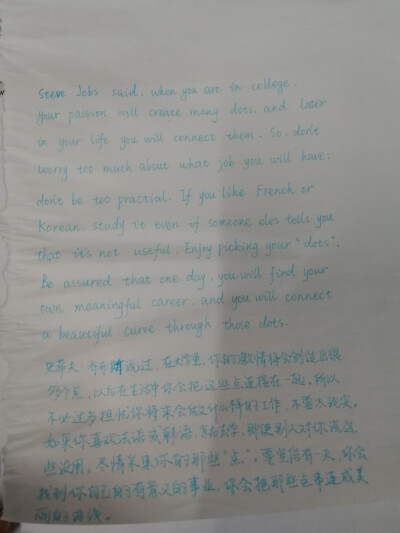 Steve Jobs said, when you are in college,
your passion will create many dots, and later
in your life you will connect them. So, don't
worry too much about what job you will have;
don't be too practial. If you like French or
Korean, study it even if someone eles tells you
that it's not useful. Enjoy picking your "dots".
Be assured that one day, you will find your
own meaningful career, and you will connect
a beautiful curve through those dots.
史蒂夫·乔布斯说过,在大学里,你的激情将会创造出很
多个点,以后在生活中你会把这些点连接在一起。所以
不必过多担忧你将来会做什么样的工作,不要太现实。
如果你喜欢法语或韩语,去学,即便别人对你说这
些没用。尽情采集你的那些"点"。要坚信有一天,你会
找到你自己的有意义的事业,你会把那些点串连成美
丽的曲线。